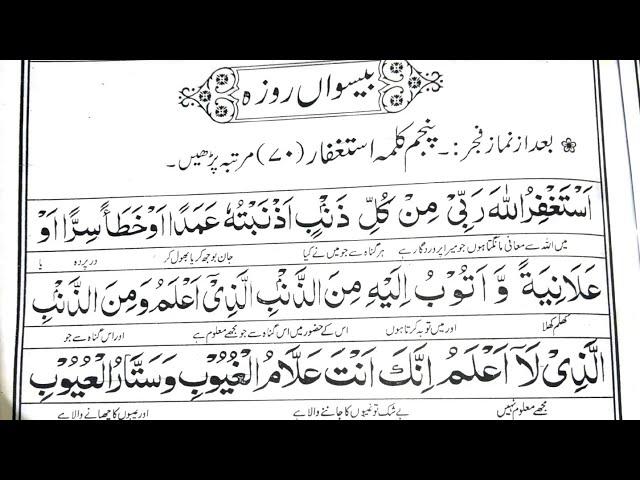 بیسواں روزہ
بعد از نماز فجر :۔ پنجم کلمہ استغفار (۷۰) مرتبہ پڑھیں۔
اَسْتَغْفِرُ اللّٰهَ رَبِّیْ مِنْ كُلِّ ذَنْۢبٍ اَذْنَبْتُهٗ عَمَدًا اَوْ خَطَأً سِرًّا اَوْ
میں اللہ سے معافی مانگتا ہوں جو میرا پروردگار ہے ہر گناہ سے جو میں نے کیا جان بوجھ کر یا بھول کر در پردہ یا
عَلَانِیَةً وَّ اَتُوْبُ اِلَیْهِ مِنَ الذَّنْۢبِ الَّذِیْۤ اَعْلَمُ وَمِنَ الذَّنْۢبِ
کھلم کھلا اور میں توبہ کرتا ہوں اس کے حضور میں اس گناہ سے جو مجھے معلوم ہے اور اس گناہ سے جو
الَّذِیْ لَاۤ اَعْلَمُ اِنَّكَ اَنْتَ عَلَّامُ الْغُیُوْبِ وَسَتَّارُ الْعُیُوْبِ
مجھے معلوم نہیں بے شک تو غیبوں کا جاننے والا ہے اور عیبوں کا چھپانے والا ہے